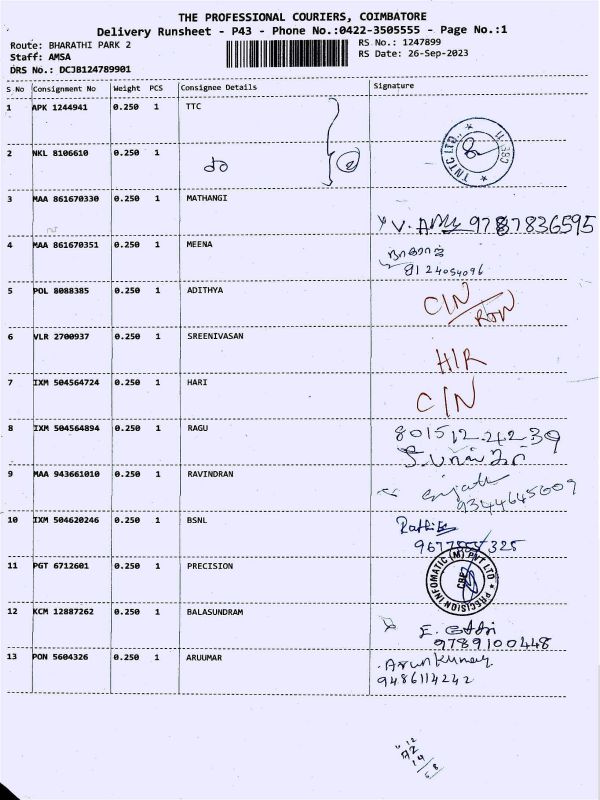 THE PROFESSIONAL COURIERS, COIMBATORE
Delivery Runsheet - P43 - Phone No.:0422-3505555 - Page No.:1
Route: BHARATHI PARK 2 RS No.: 1247899
Staff: AMSA RS Date: 26-Sep-2023
DRS No.: DCJB124789901
S No Consignment No Weight PCS Consignee Details Signature
1 APK 1244941 0.250 1 TTC
2 NKL 8106610 0.250 1 2 TNTC LTD.,
3 MAA 861670330 0.250 1 MATHANGI
V. 9787836595
4 MAA 861670351 0.250 1 MEENA நாகராஜ்
8124054096
5 POL 8088385 0.250 1 ADITHYA C/N
6 VLR 2700937 0.250 1 SREENIVASAN
H/R
7 IXM 504564724 0.250 1 HARI C/N
8 IXM 504564894 0.250 1 RAGU
9 MAA 943661010 0.250 1 RAVINDRAN
9344645009
10 IXM 504620246 0.250 1 BSNL
11 PGT 6712601 0.250 1 PRECISION PRECISION INFOMATIC (M) PVT LTD CBE
12 KCM 12887262 0.250 1 BALASUNDRAM
9789100448
13 PON 5604326 0.250 1 ARUUMAR Arunkumar
9486114242
12
14